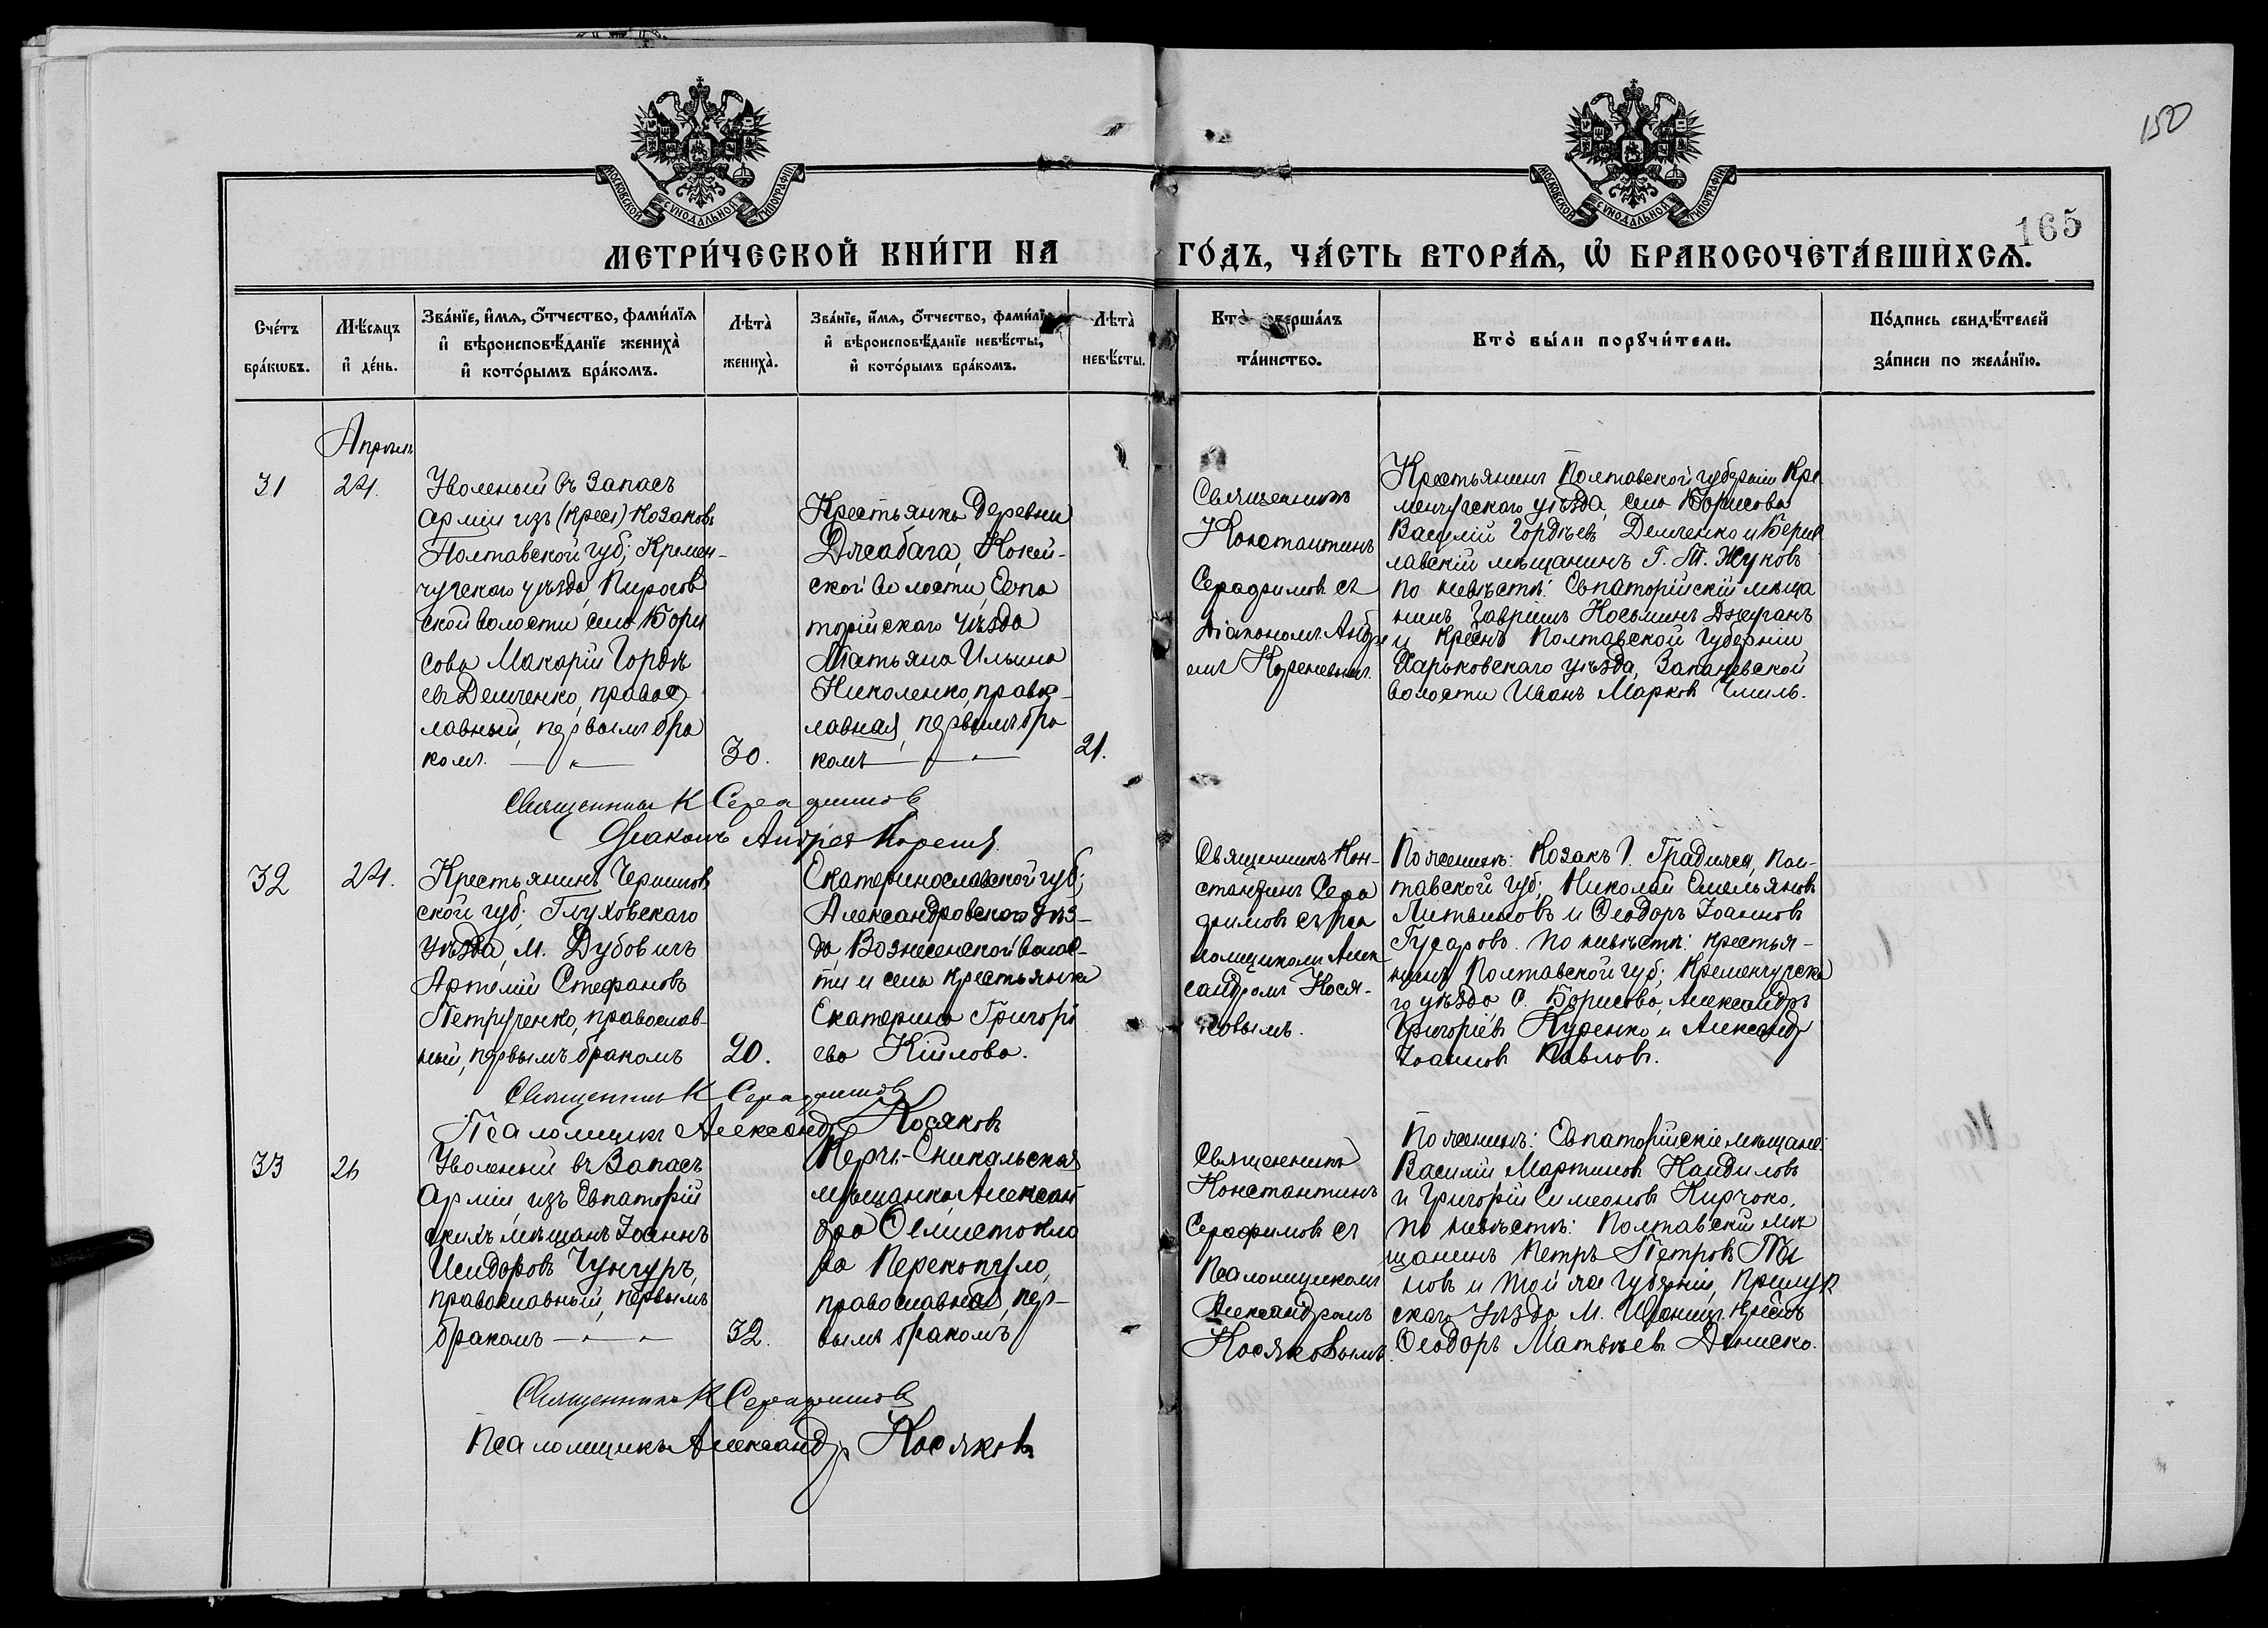 150
165
МОСКОВСКОЙ СѴНОДАЛЬНОЙ ТИПОГРАФІИ
МОСКОВСКОЙ СѴНОДАЛЬНОЙ ТИПОГРАФІИ
МЕТРИ́ЧЕСКОЙ КНИ́ГИ НА ГО́ДЪ, ЧА́СТЬ ВТОРА́Ѧ, Ѡ҆ БРАКОСОЧЕТА́ВШИХСѦ.
Сче́тъ
бра́кѡвъ.
Мѣ́сѧцъ
и҆ де́нь.
Зва́нїе, и҆́мѧ, ѻ҆́тчество, фами́лїѧ
и҆ вѣроисповѣ́данїе жениха̀
и҆ кото́рымъ бра́комъ.
Лѣта̀
жениха̀.
Зва́нїе, и҆́мѧ, ѻ҆́тчество, фами́лїѧ
и҆ вѣроисповѣ́данїе невѣ́сты,
и҆ кото́рымъ бра́комъ.
Лѣта̀
невѣ́сты.
Кто̀
та́инство.
Кто̀ бы́ли порꙋчи́тели.
По́дпись свидѣ́телей
за́писи по жела́нїю.
Апрѣль
31
24.
Уволеный въ запасъ
арміи изъ (крест) козаковъ
Полтавской губ; Кремен-
чугского уѣзда, Пирогов
ской волости села Бори
сова Макарій Гордѣ
евъ Демченко, правос
лавный, первымъ бра
комъ.
30.
Крестьянка Деревни
Джабага, Кокей-
ской волости, Евпа
торійскаго Уѣзда
Татьяна Ильина
Николенко, правос-
лавная, первымъ бра
комъ
21.
Священникъ
Константинъ
Серафимовъ съ
діакономъ Андре
емъ Кореневымъ.
Крестьянинъ Полтавской губерніи Кре
менчугского уѣзда, села Борисова
Василій Гордѣевъ Демченко и Берис
лавскій мѣщанинъ Г. Т. Жуковъ
по невѣстѣ: Евпаторійскій мѣща
нинъ Гавріилъ Косьминъ Джеранъ
и Крест-нъ Полтавской Губерніи
Харьковскаго уѣзда,
волости Иванъ Марковъ Чмиль.
Священникъ К Серафимовъ
Діаконъ Андрей
32
24.
Крестьянинъ Чернигов
ской губ; Глуховскаго
Уѣзда, м. Дубовичъ
Артемій Стефановъ
Петрученко, православ-
ный, первымъ бракомъ
20.
Екатеринославской губ;
Александровскаго Уѣз-
да, Вознесенской волос-
ти и села крестьянка
Екатерина Григорі
ева Кійлова.
Священникъ Кон-
стантинъ Сера
фимовъ съ пса
ломщикомъ Алек
сандромъ Кося-
ковымъ.
По женихѣ: Козакъ Г. Градижса, Пол-
тавской губ; Николай Емельяновъ
Литвиновъ и Ѳеодоръ Іоанновъ
Гусаровъ. По невѣстѣ: крестья-
нинъ Полтавской губ; Кременчугска
го уѣзда с. Борисова, Александръ
Григоріевъ Куренко и Александръ
Іоанновъ Павловъ.
Священникъ К Серафимовъ
Псаломщикъ Александръ Косяковъ
33
26
Уволеный въ Запасъ
арміи, изъ Евпаторій
скихъ мѣщанъ Іоаннъ
Исидоровъ Чунгуръ,
православный, первымъ
бракомъ
32.
Керчь-Еникальская
мѣщанка, Алексан
дра Ѳемистокло
ва Перекопуло,
православная, пер-
вымъ бракомъ
Священникъ
Константинъ
Серафимовъ съ
Псаломщикомъ
Александромъ
Косяковымъ.
По женихѣ: Евпаторійскіе мѣщане:
Василій Мартиновъ Кандиловъ
и Григорій Симеоновъ Кирчоко,
по невѣстѣ: Полтавскій мѣ
щанинъ Петръ Петровъ
новъ и той же губерніи, Прилук
скаго Уѣзда, м. крест-нъ
Ѳеодоръ Матвѣевъ
Священникъ К Серафимовъ
Псаломщикъ Александръ Косяковъ